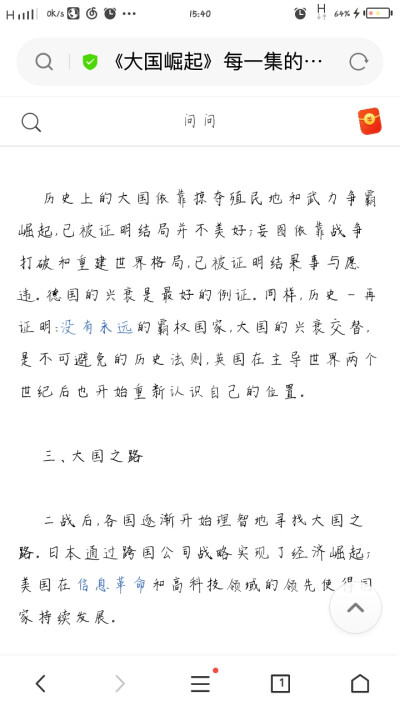 H 0K/s 15:40 H 64%
《大国崛起》每一集的…
问问
历史上的大国依靠掠夺殖民地和武力争霸
崛起,已被证明结局并不美好;妄图依靠战争
打破和重建世界格局,已被证明结果事与愿
违。德国的兴衰是最好的例证。同样,历史一再
证明:没有永远的霸权国家,大国的兴衰交替,
是不可避免的历史法则,英国在主导世界两个
世纪后也开始重新认识自己的位置。
三、大国之路
二战后,各国逐渐开始理智地寻找大国之
路。日本通过跨国公司战略实现了经济崛起;
美国在信息革命和高科技领域的领先使得国
家持续发展。
1